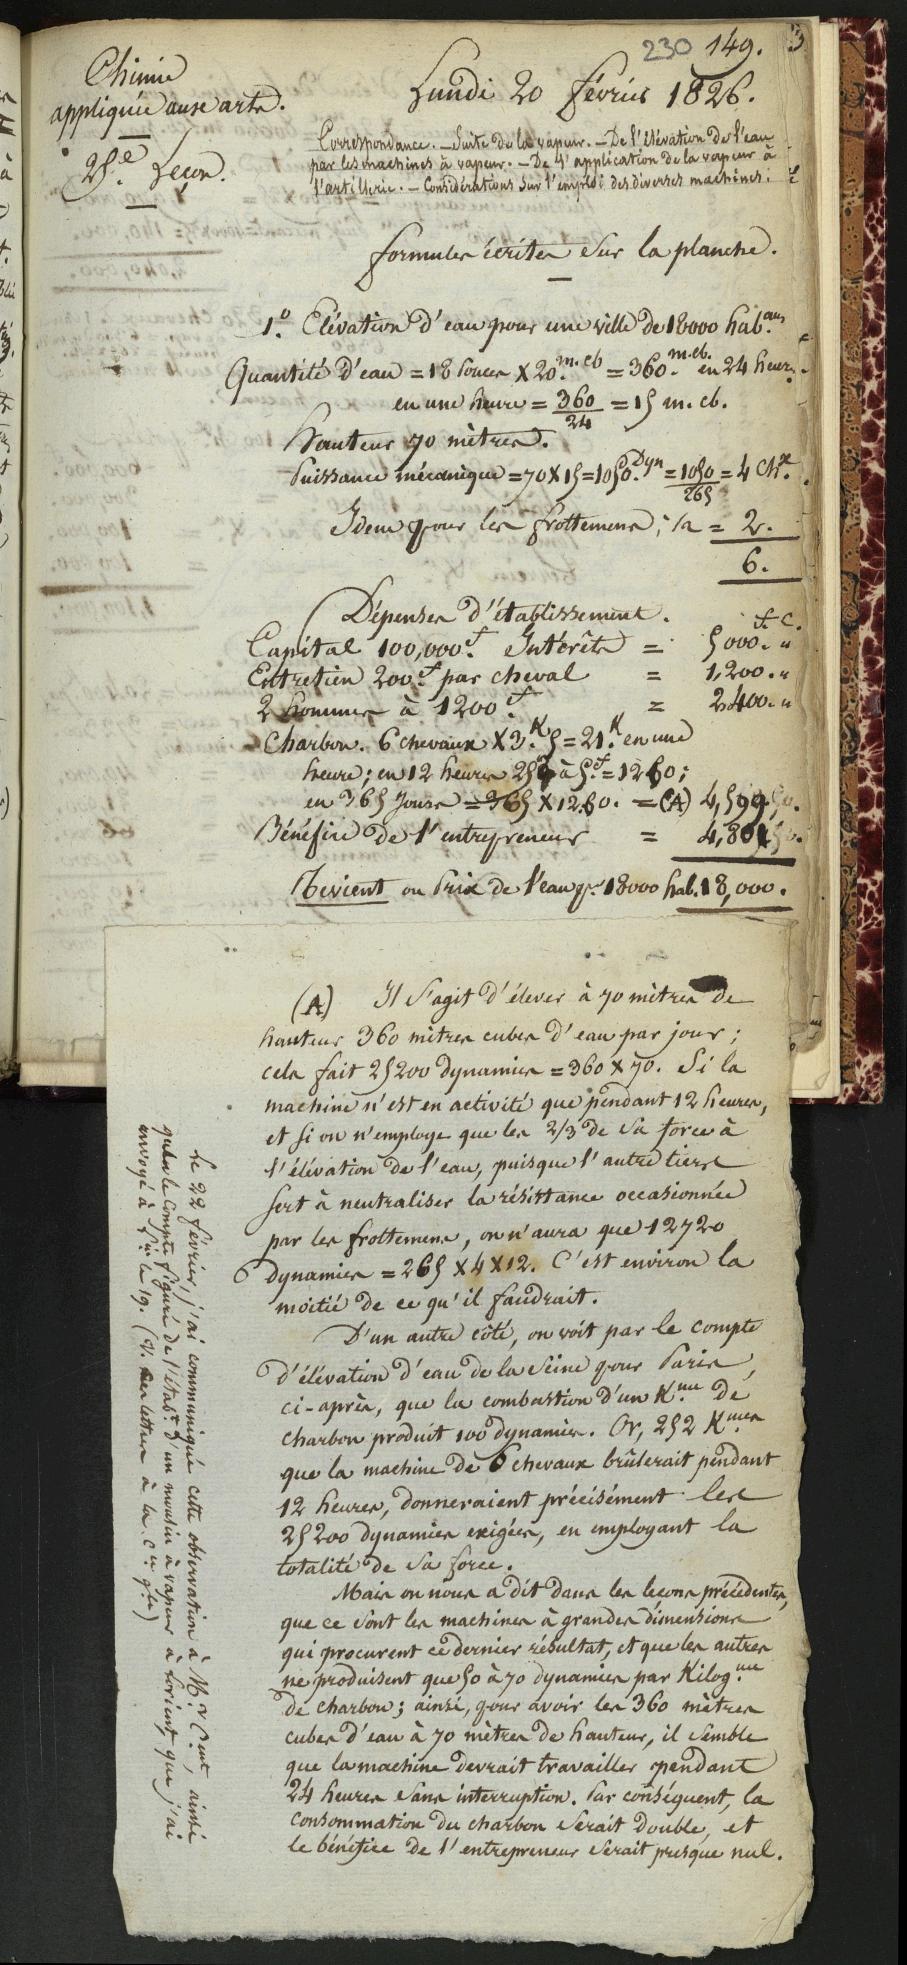 230 149.
Chimie
appliquée aux arts.
Lundi 20 février 1826.
25e. Leçon.
Correspondance. – Suite de la vapeur. – De l'élévation de l'eau
par les machines à vapeur. – De l'application de la vapeur à
l'artillerie. – Considérations sur l'emploi des diverses machines.
formules écrites sur la planche.
1.o Elévation d'eau pour une ville de 18000 hab.ans
Quantité d'eau = 18 pouces X 20.m.cb = 360.m.cb. en 24 heures.
en une heure = 360/24 = 15 m. cb.
Hauteur 70 mètres.
Puissance mécanique = 70 X 15 = 1050.Dyn = 1050/265 = 4 Chx.
Idem pour les frottemens; 1/2 = 2.
6.
Dépenses d'établissement. f. c.
Capital 100,000.f Intérêts = 5000. "
Entretien 200.f par cheval = 1,200. "
2 hommes à 1200.f = 2400. "
Charbon. 6 chevaux X 3.K 5 = 21.K en une
heure; en 12 heures 252 à 5.f = 12.60;
en 365 Jours = 365 X 12.60. = (A) 4,599.
Bénéfice de l'entrepreneur = 4,801
Revient ou Prix de l'eau pr. 18000 hab. 18,000.
(A) Il s'agit d'élever à 70 mètres de
hauteur 360 mètres cubes d'eau par jour;
cela fait 25200 dynamies = 360 X 70. Si la
machine n'est en activité que pendant 12 heures,
et si on n'employe que les 2/3 de sa force à
l'élévation de l'eau, puisque l'autre tiers
sert à neutraliser la résistance occasionnée
par les frottemens, on n'aura que 12720
dynamies = 265 X 4 X 12. C'est environ la
moitié de ce qu'il faudrait.
D'un autre côté, on voit par le compte
d'élévation d'eau de la Seine pour Paris
ci-après, que la combustion d'un K.me de
charbon produit 100 dynamies. Or, 252 K.mes
que la machine de 6 chevaux brûlerait pendant
12 heures, donneraient précisément les
25200 dynamies exigées, en employant la
totalité de sa force.
Mais on nous a dit dans les leçons précédentes,
que ce sont les machines à grandes dimensions
qui procurent ce dernier résultat, et que les autres
ne produisent que 50 à 70 dynamies par Kilog.me
de charbon; ainsi, pour avoir les 360 mètres
cubes d'eau à 70 mètres de hauteur, il semble
que la machine devrait travailler pendant
24 heures sans interruption. Par conséquent, la
consommation du charbon serait double, et
le bénéfice de l'entrepreneur serait presque nul.
Le 22 février, j'ai communiqué cette observation à M. ainsi
que le compte figuré de l'étabt. d'un moulin à vapeur à Lorient, que j'ai
envoyé à le 19. (V. lettre à la)